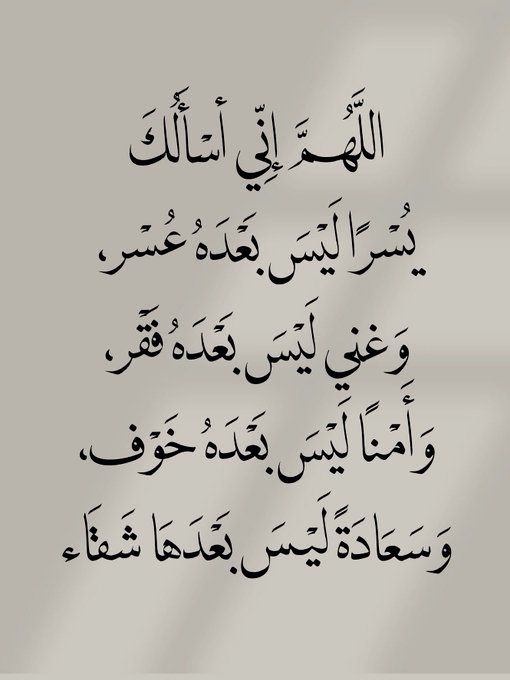 اللَّهُمَّ إِنِّي أَسْأَلُكَ
يُسْرًا لَيْسَ بَعْدَهُ عُسْر،
وَغنِي لَيْسَ بَعْدَهُ فَقْر،
وَأَمْنًا لَيْسَ بَعْدَهُ خَوْف،
وَسَعَادَةً لَيْسَ بَعْدَهَا شَقَاء